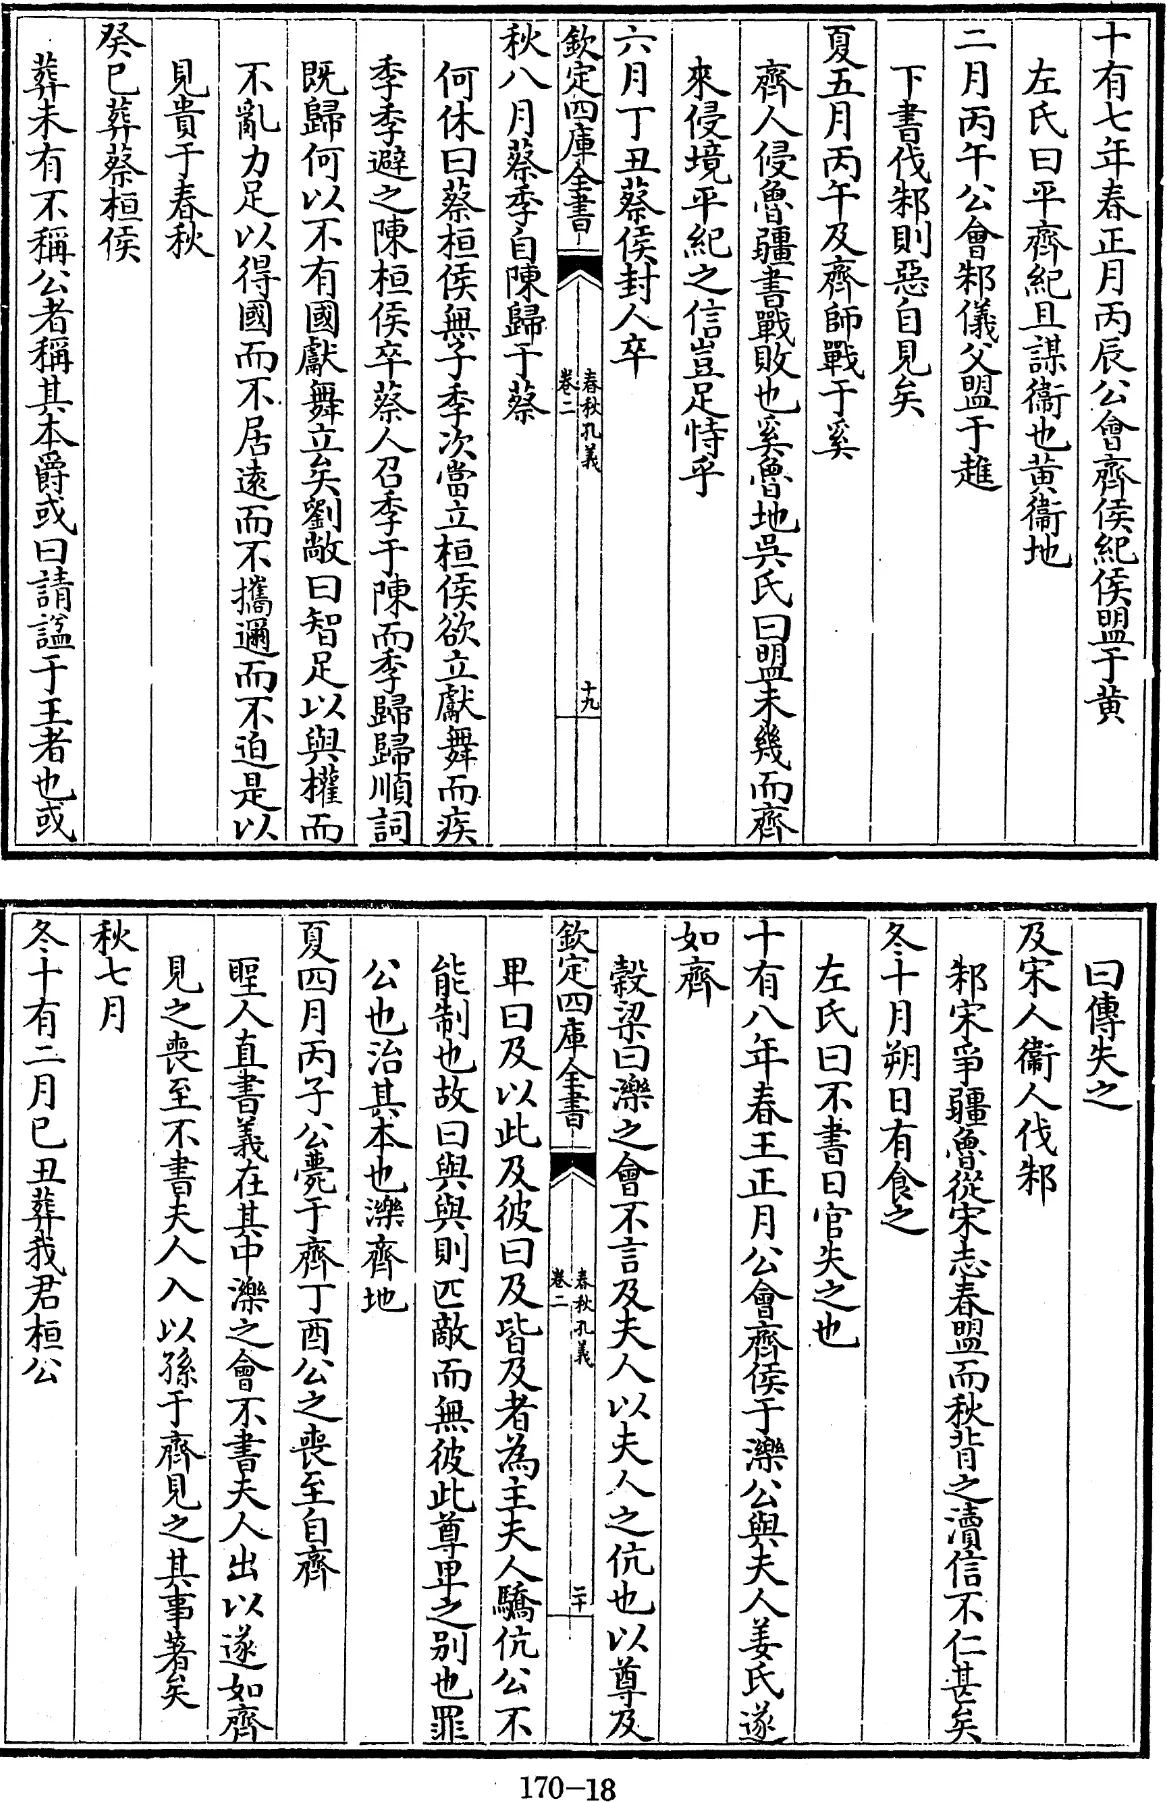 十有七年春正月丙辰公會齊侯紀侯盟于黄
左氏曰平齊紀且謀衞也黄衞地
二月丙午公會邾儀父盟于趡
下書伐邾則惡自見矣
夏五月丙午及齊師戰于奚
齊人侵魯疆書戰敗也奚魯地吳氏曰盟未幾而齊
來侵境平紀之信豈足恃乎
六月丁丑蔡侯封人卒
欽定四庫全書
春秋孔義
卷二
十九
秋八月蔡季自陳歸于蔡
何休曰蔡桓侯無子季次當立桓侯欲立獻舞而疾
季季避之陳桓侯卒蔡人召季于陳而季歸歸順詞
既歸何以不有國獻舞立矣劉敞曰智足以與權而
不亂力足以得國而不居逺而不攜邇而不迫是以
見貴于春秋
癸巳葬蔡桓侯
葬未有不稱公者稱其本爵或曰請諡于王者也或
曰傳失之
及宋人衞人伐邾
邾宋爭疆魯從宋志春盟而秋背之瀆信不仁甚矣
冬十月朔日有食之
左氏曰不書日官失之也
十有八年春王正月公會齊侯于濼公與夫人姜氏遂
如齊
榖梁曰濼之會不言及夫人以夫人之伉也以尊及
欽定四庫全書
春秋孔義
卷二
二十
卑曰及以此及彼曰及皆及者為主夫人驕伉公不
能制也故曰與與則匹敵而無彼此尊卑之别也罪
公也治其本也濼齊地
夏四月丙子公薨于齊丁酉公之喪至自齊
聖人直書義在其中濼之會不書夫人出以遂如齊
見之喪至不書夫人入以孫于齊見之其事著矣
秋七月
冬十有二月己丑葬我君桓公
170-18